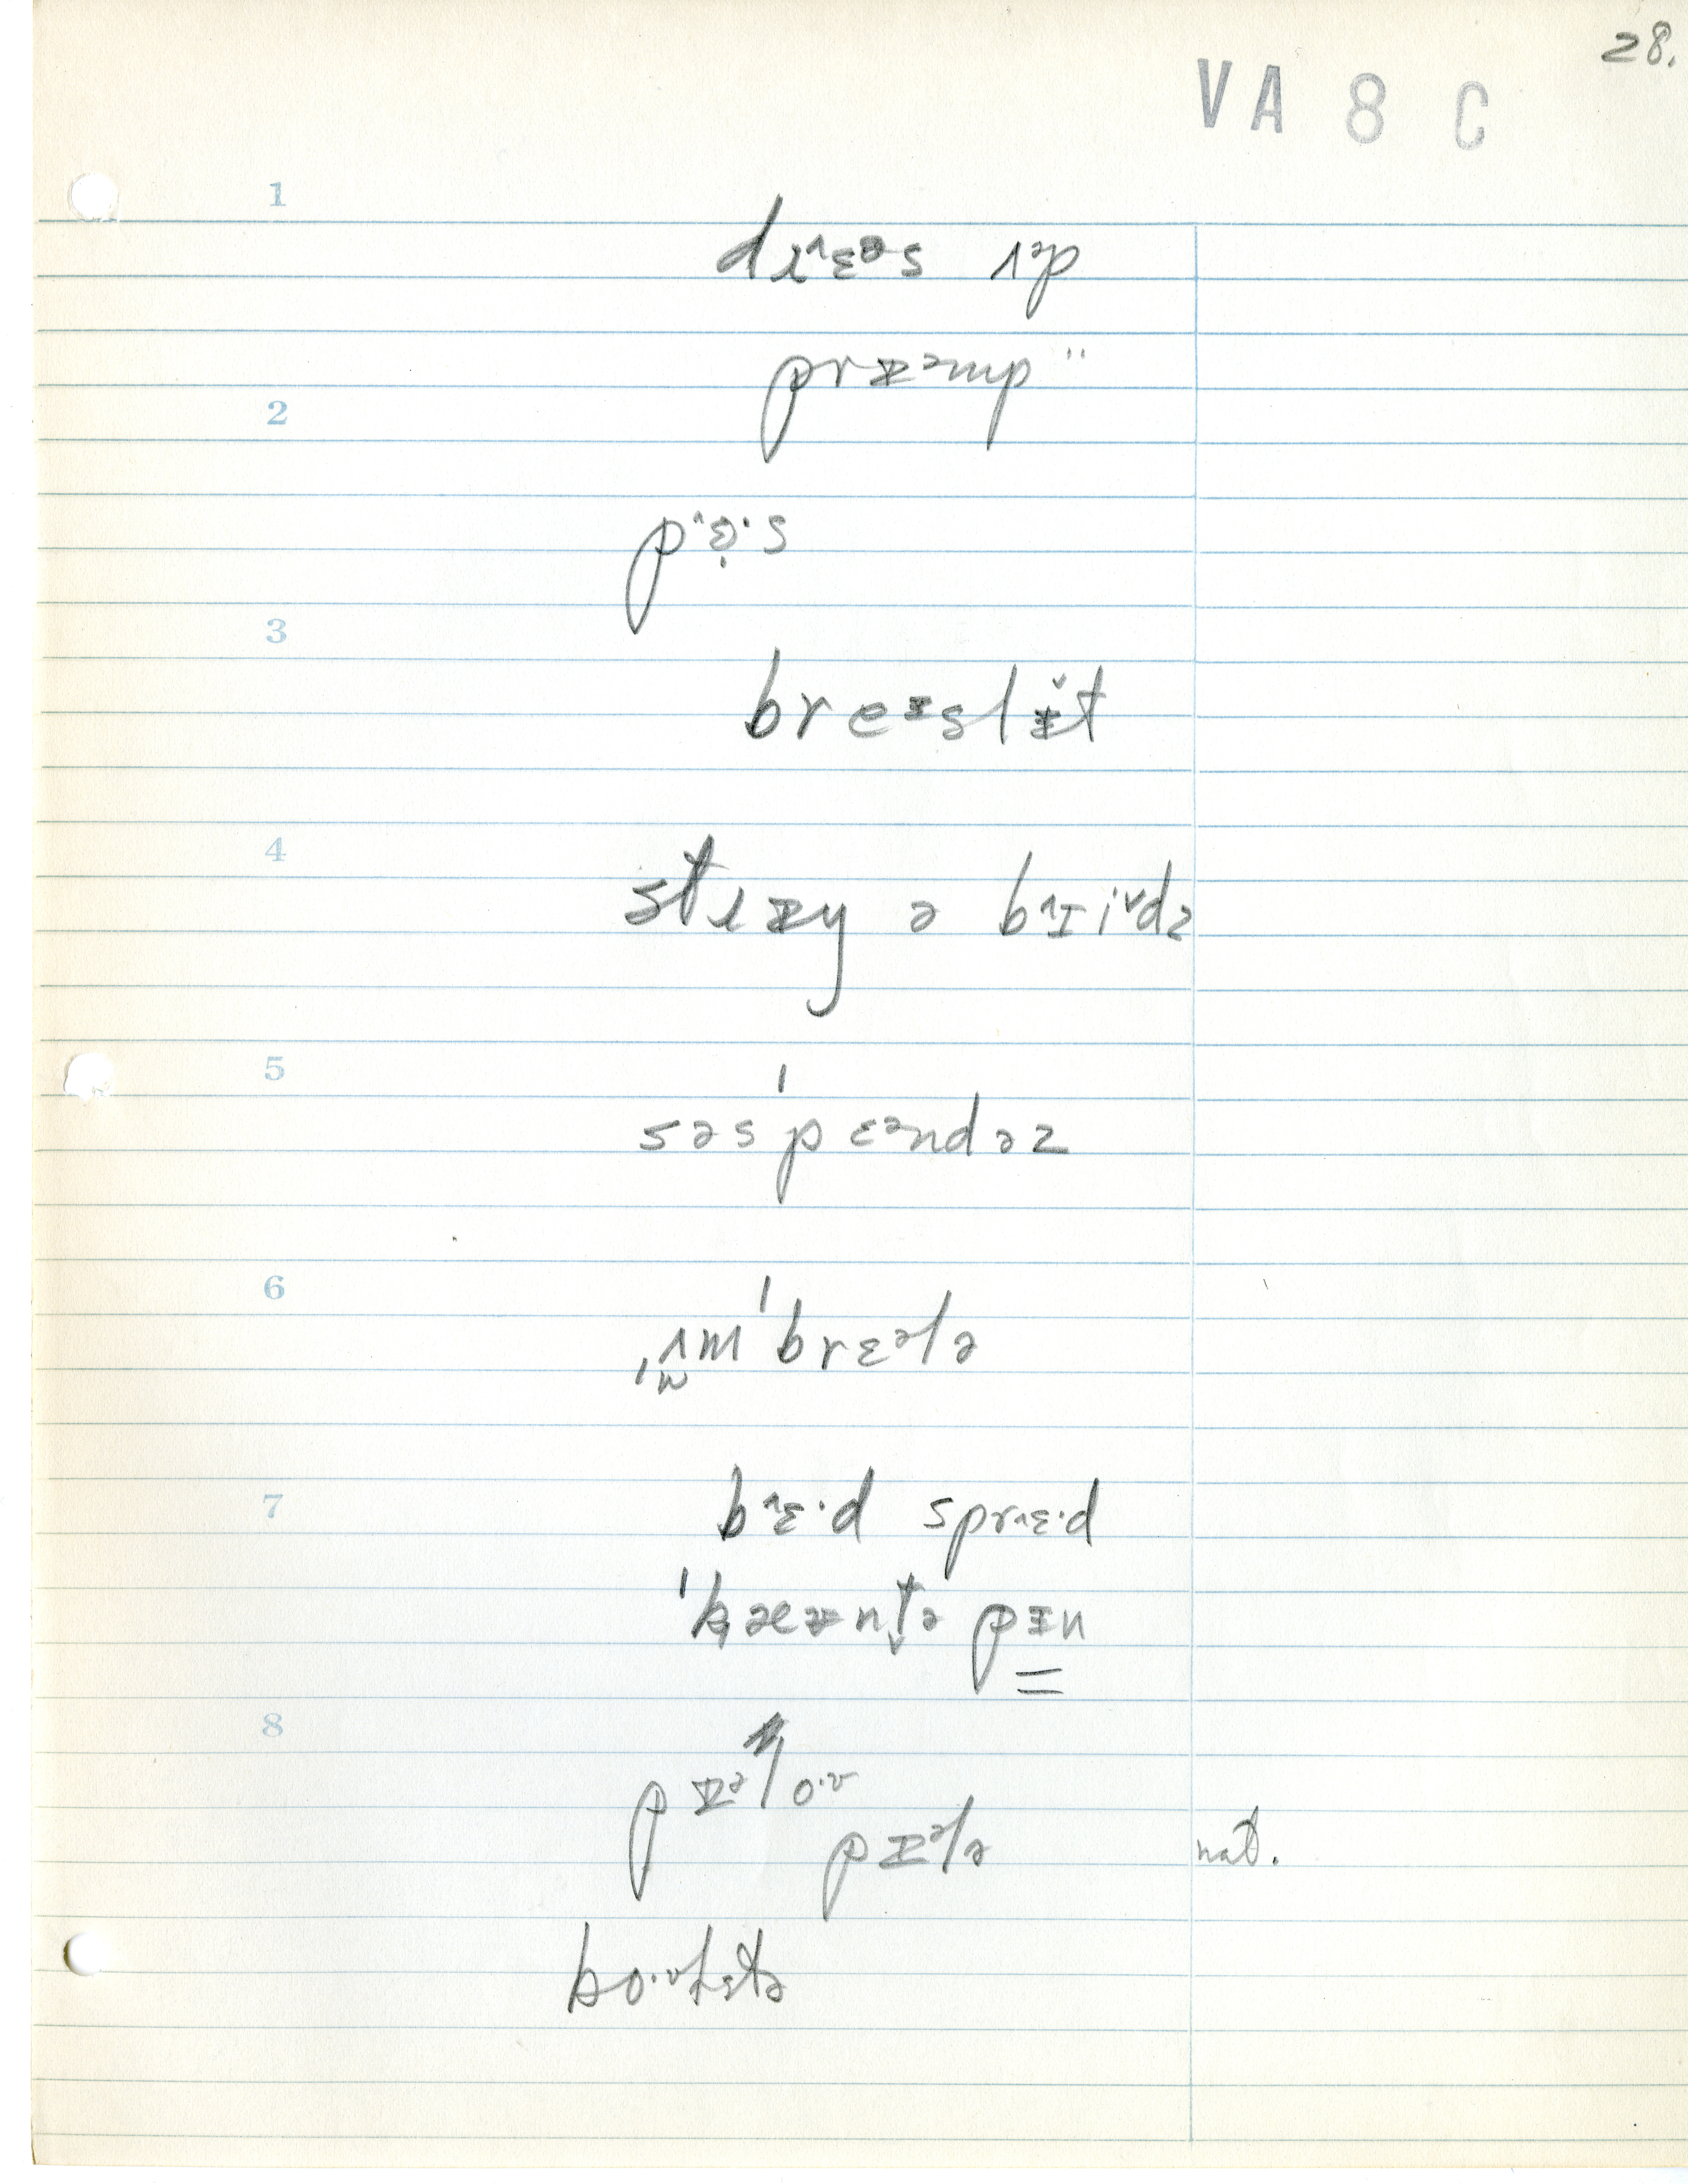 28.
VA 8 C
1
dɹ˄ɛᵊs ʌᵊp
prɪᵊmp "
2
p˄ɛ̣·s
3
breɪslɪ̌t
4
stɹɪŋ ə b˄ɪi˅dz
5
səsˈpɛᵊndəz
6
ˌʌmˈbrɛᵊlə
7
b˄ɛ·d spr˄ɛ·d
ˈkæɪntəpɪn
8
pɪᵊlo·ʊ
pɪᵊlə nat.